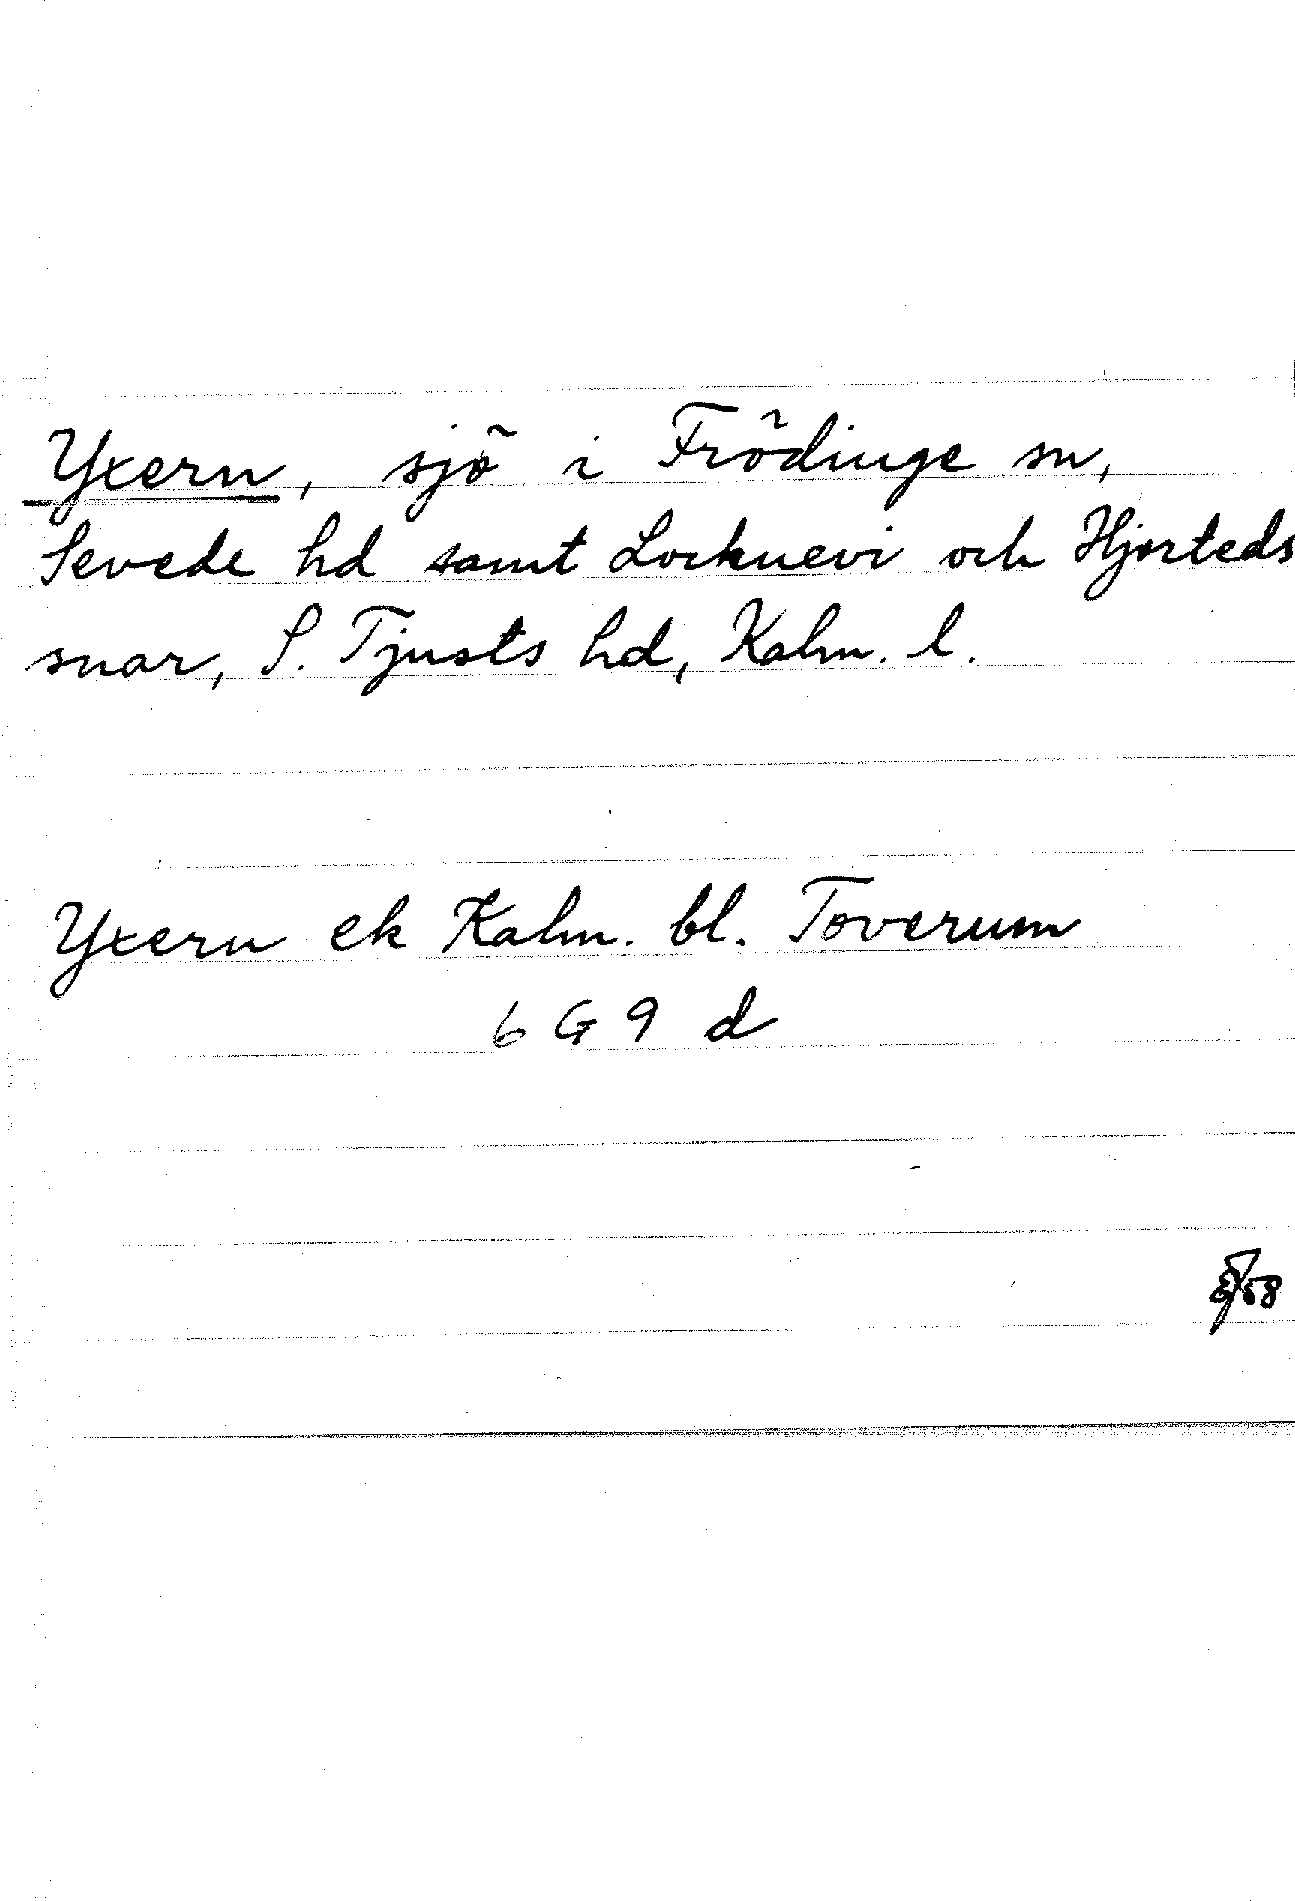 Yxern, sjö i Frödinge sn,
Sevede hd samt Locknevi och Hjorteds
snar, S. Tjusts hd, Kalm. l.
Yxern ek Kalm. bl. Toverum
6 G 9 d